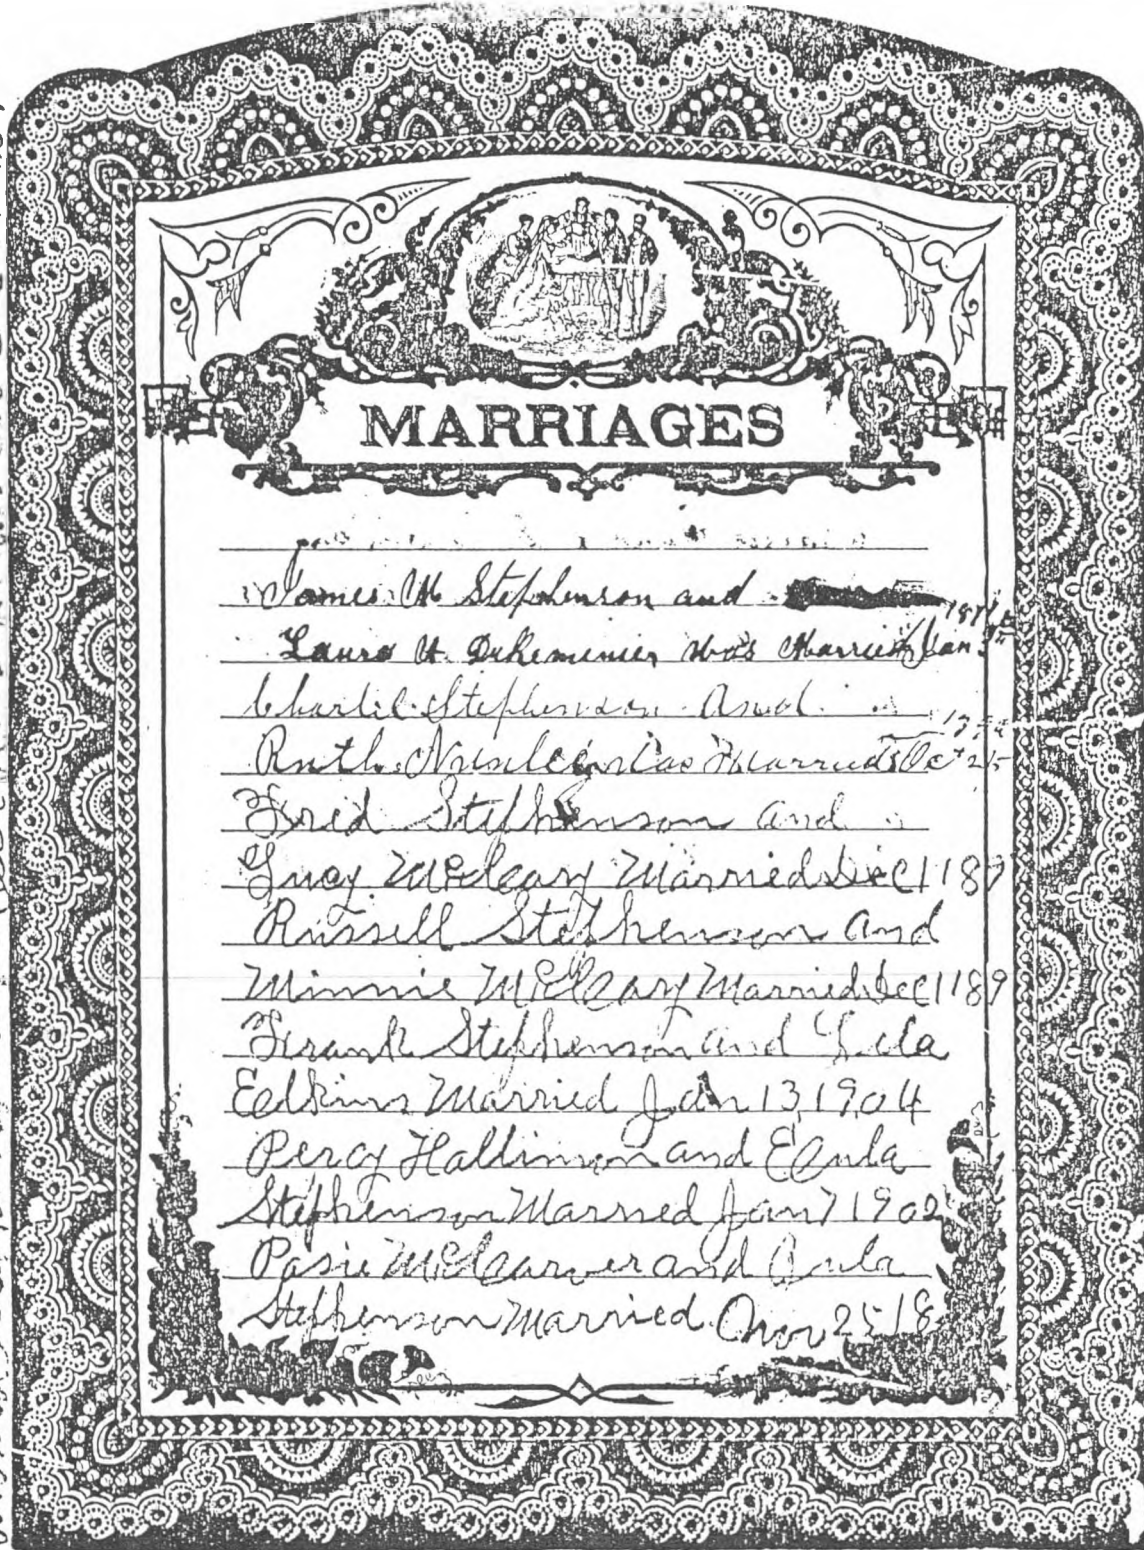 MARRIAGES
James M Stephenson and
Laura H. Dukeminier was Married Jan
Charlie Stephenson And
Ruth was Married Oct 25
Fred Stephenson and
Lucy McCleary Married Dec 1 189
Russell Stephenson and
Minnie McCleary Married Dec 1 189
Frank Stephenson and Lula
Edkins Married Jan 13, 1904
Percy Hallinson and Eula
Stephenson Married Jan 7 1902
McCarver and Beula
Stephenson Married Nov 25 18